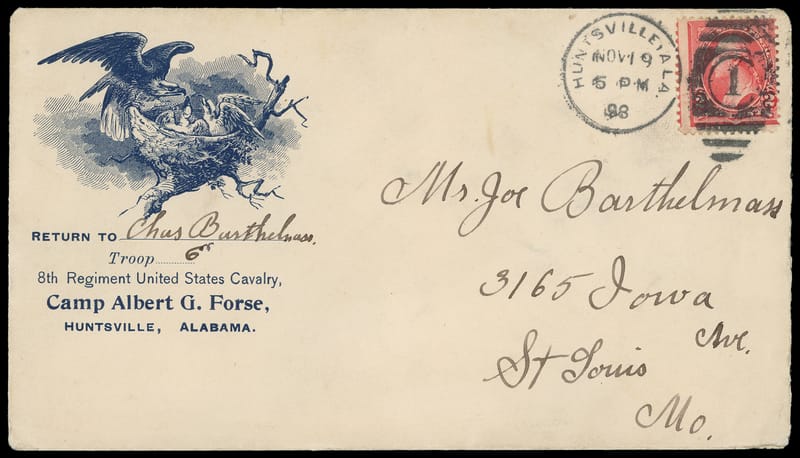 HUNTSVILLE, ALA.
NOV 19
5 PM
98
1
RETURN TO Chas Barthelmass.
Troop
8th Regiment United States Cavalry,
Camp Albert G. Forse,
HUNTSVILLE, ALABAMA.
Mr. Joe Barthelmass
3165 Iowa
Ave.
St Louis
Mo.